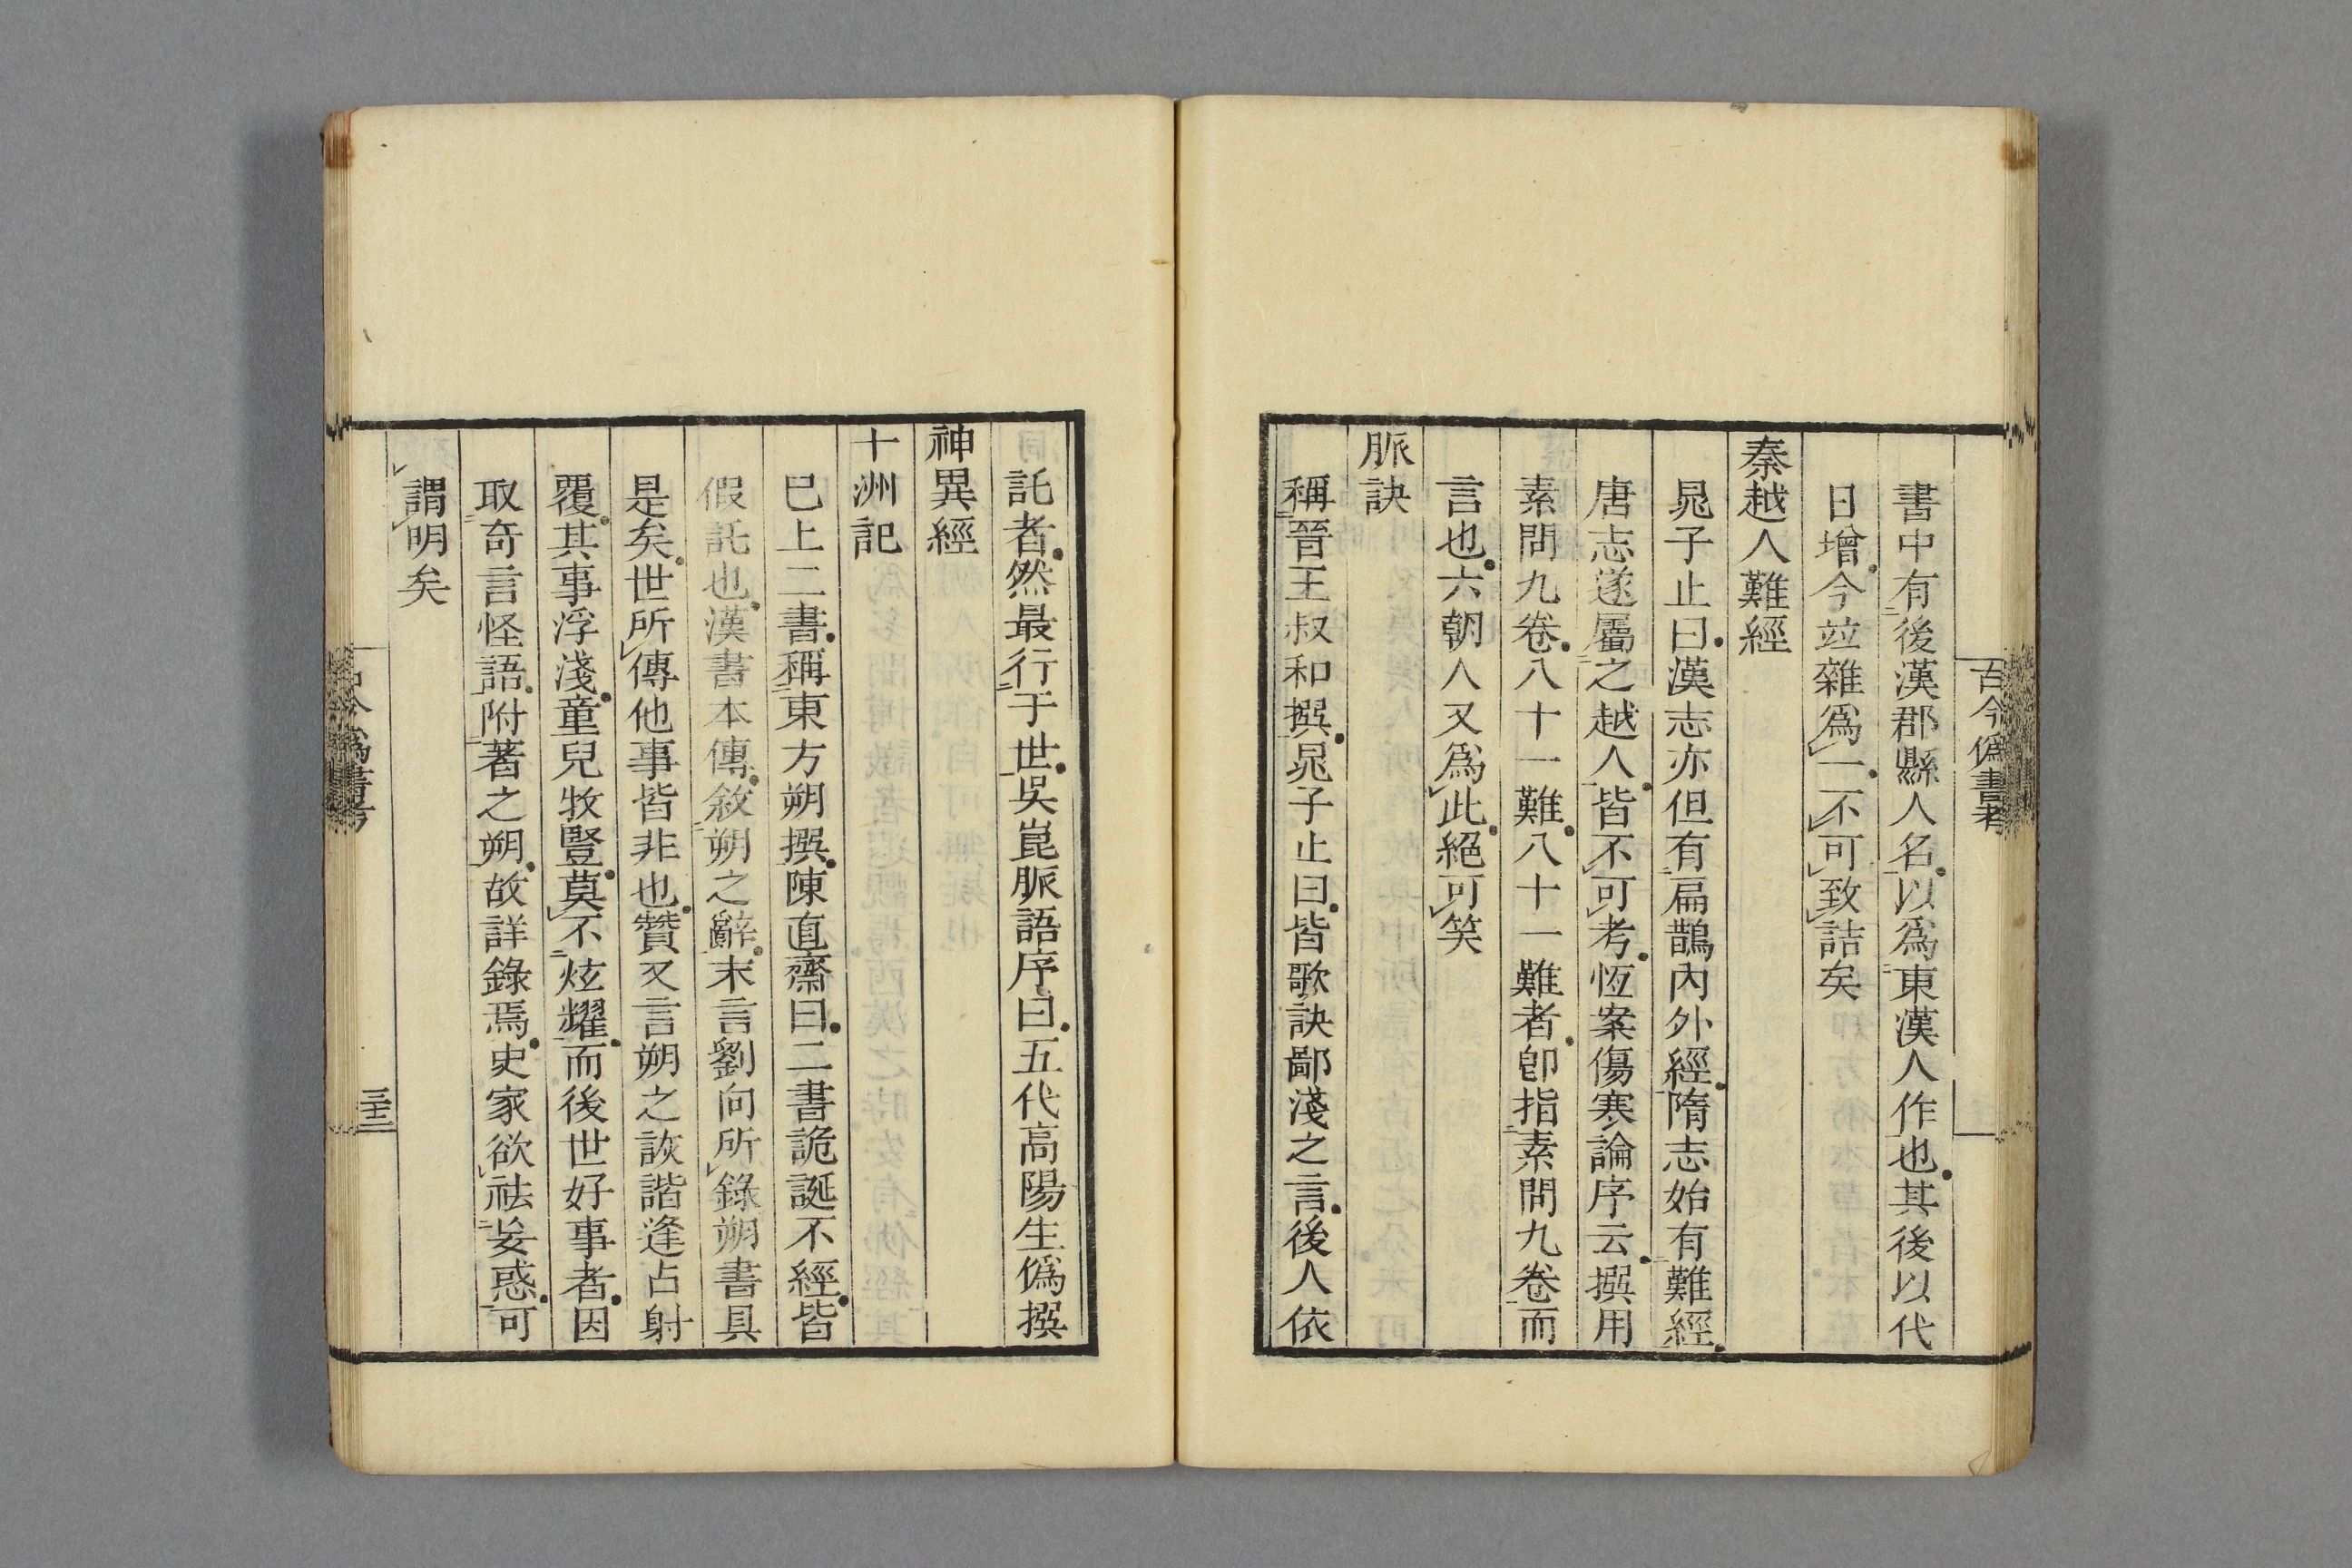 古今僞書考
書中有後漢郡縣人名以爲東漢人作也其後以代
日增今竝雜爲一不可致詰矣
秦越人難經
晁子止曰漢志亦但有扁鵲內外經隋志始有難經
唐志遂屬之越人皆不可考恆案傷寒論序云撰用
素問九卷八十一難八十一難者卽指素問九卷而
言也六朝人又爲此絕可笑
脈訣
稱晉王叔和撰晁子止曰皆歌訣鄙淺之言後人依
託者然最行于世吳崑脈語序曰五代高陽生僞撰
神異經
十洲記
已上二書稱東方朔撰陳直齋曰二書詭誕不經皆
假託也漢書本傳敘朔之辭末言劉向所錄朔書具
是矣世所傳他事皆非也贊又言朔之詼諧逢占射
覆其事浮淺童兒牧豎莫不炫耀而後世好事者因
取奇言怪語附著之朔故詳錄焉史家欲祛妄惑可
謂明矣
古今僞書考
三十二